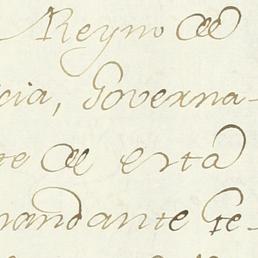 Reyno de
cia, Governa-
te de esta
mandante Ge-